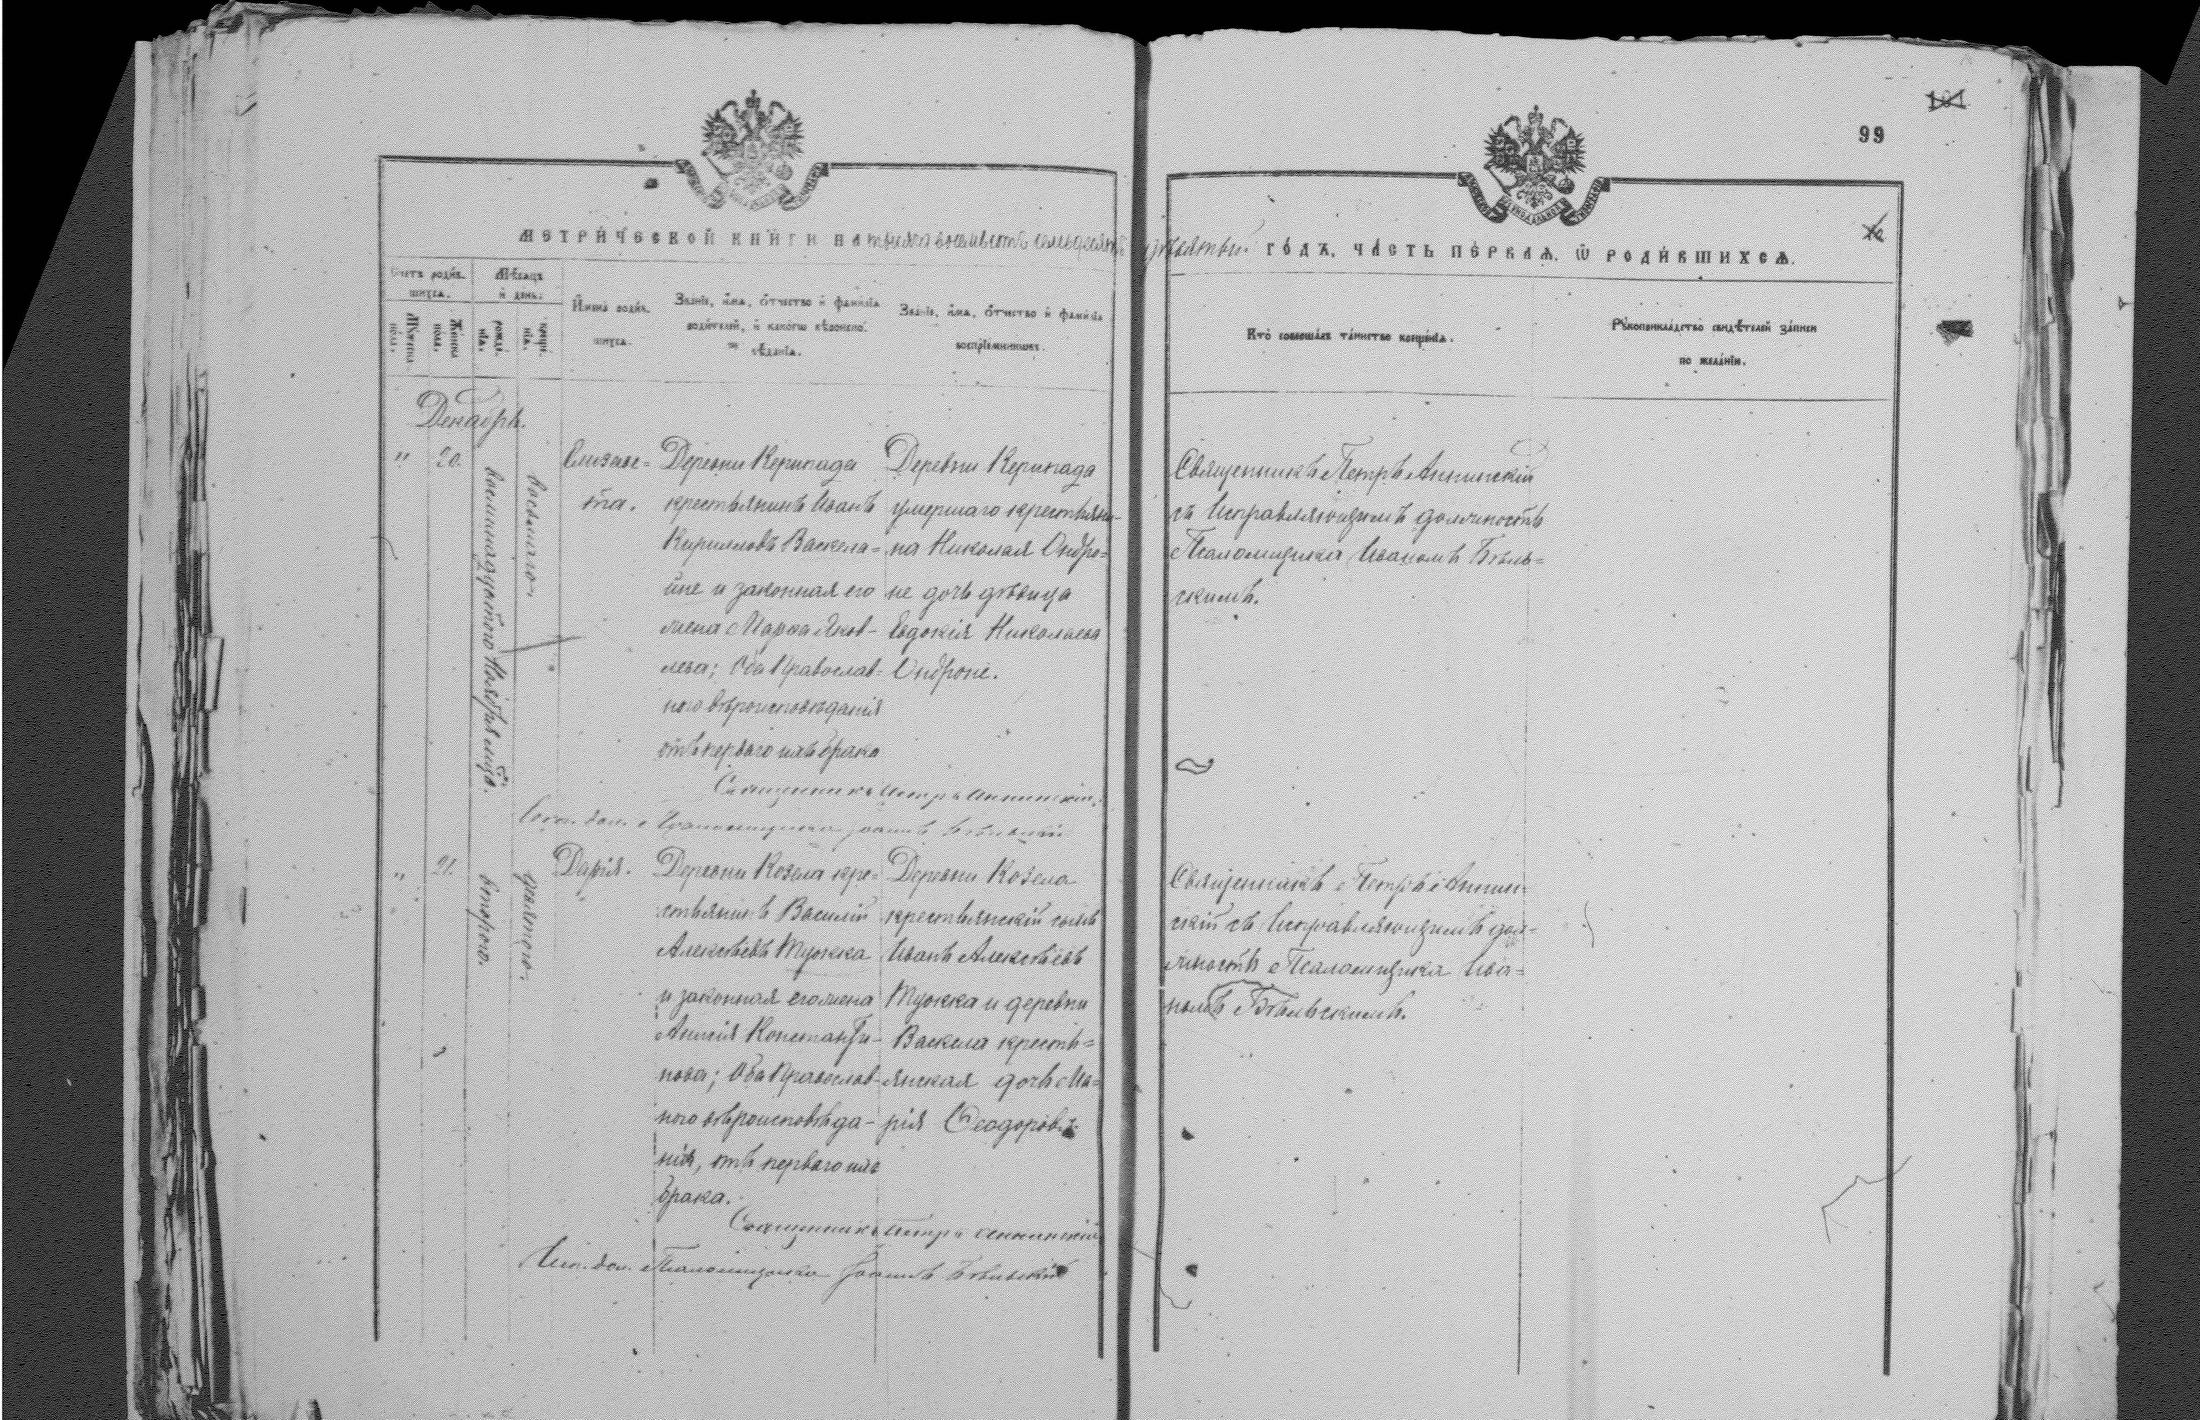 99
МЕТРИ́ЧЕСКОЙ КНИ́ГИ НА тысяча восемьсотъ семьдесятъ девятый ГО́ДЪ, ЧА́СТЬ ПЕ́РВАѦ, Ѿ РОДИ́ВШИХСѦ.
Счетъ роди́в-
шихсѧ.
Мѣсѧцъ
и҆ день.
Мꙋжеска
по́ла.
Же́нска
по́ла.
рожде́-
нїѧ.
креще́-
нїѧ.
И҆мена̀ роди́в-
шихсѧ.
Зва́нїе, и҆́мѧ, ѻ҆́тчество и҆ фами́лїѧ
роди́телей, и҆ како́гѡ вѣроиспо-
вѣ́данїѧ.
Зва́нїе, и҆́мѧ, ѻ҆́тчество и҆ фами́лїѧ
воспрїе́мниковъ.
Кто̀ соверша́лъ та́инство креще́нїѧ.
Рꙋкоприкла́дство свидѣ́телей за́писи
по жела́нїю.
Декабрь.
" 20.
восемнадцатого Ноября мѣс.
восьмаго
Елизаве-
та.
Деревни Керипада
крестьянинъ Иванъ
Кирилловъ Васкела-
йне и законная его
жена Марѳа Яков-
лева; Оба Православ-
наго вѣроисповѣданія
отъ перваго ихъ брака
Деревни Керипада
умершаго крестьяни-
на Николая Ондро-
не дочь дѣвица
Евдокія Николаева
Ондроне.
Священникъ Петръ Аннинскій
съ Исправляющимъ должность
Псаломщика Иваномъ Бѣль-
скимъ.
Священникъ Петръ Аннинскій.
Исп. дол. Псаломщика Іоаннъ Бѣльскій
" 21.
втораго.
девятого.
Дарія.
Деревни Козела кре-
стьянинъ Василій
Алексѣевъ Туокка
и законная его жена
Анисія Константи-
нова; Оба Православ-
наго вѣроисповѣда-
нія, отъ перваго ихъ
брака.
Деревни Козела
крестьянскій сынъ
Иванъ Алексѣевъ
Туокка и деревни
Васкела кресть-
янская дочь Ма-
рія Ѳеодорова
Священникъ Петръ Аннин-
скій съ Исправляющимъ дол-
жность Псаломщика Ива-
номъ Бѣльскимъ.
Священникъ Петръ Аннинскій
Исп. дол. Псаломщика Іоаннъ Бѣльскій